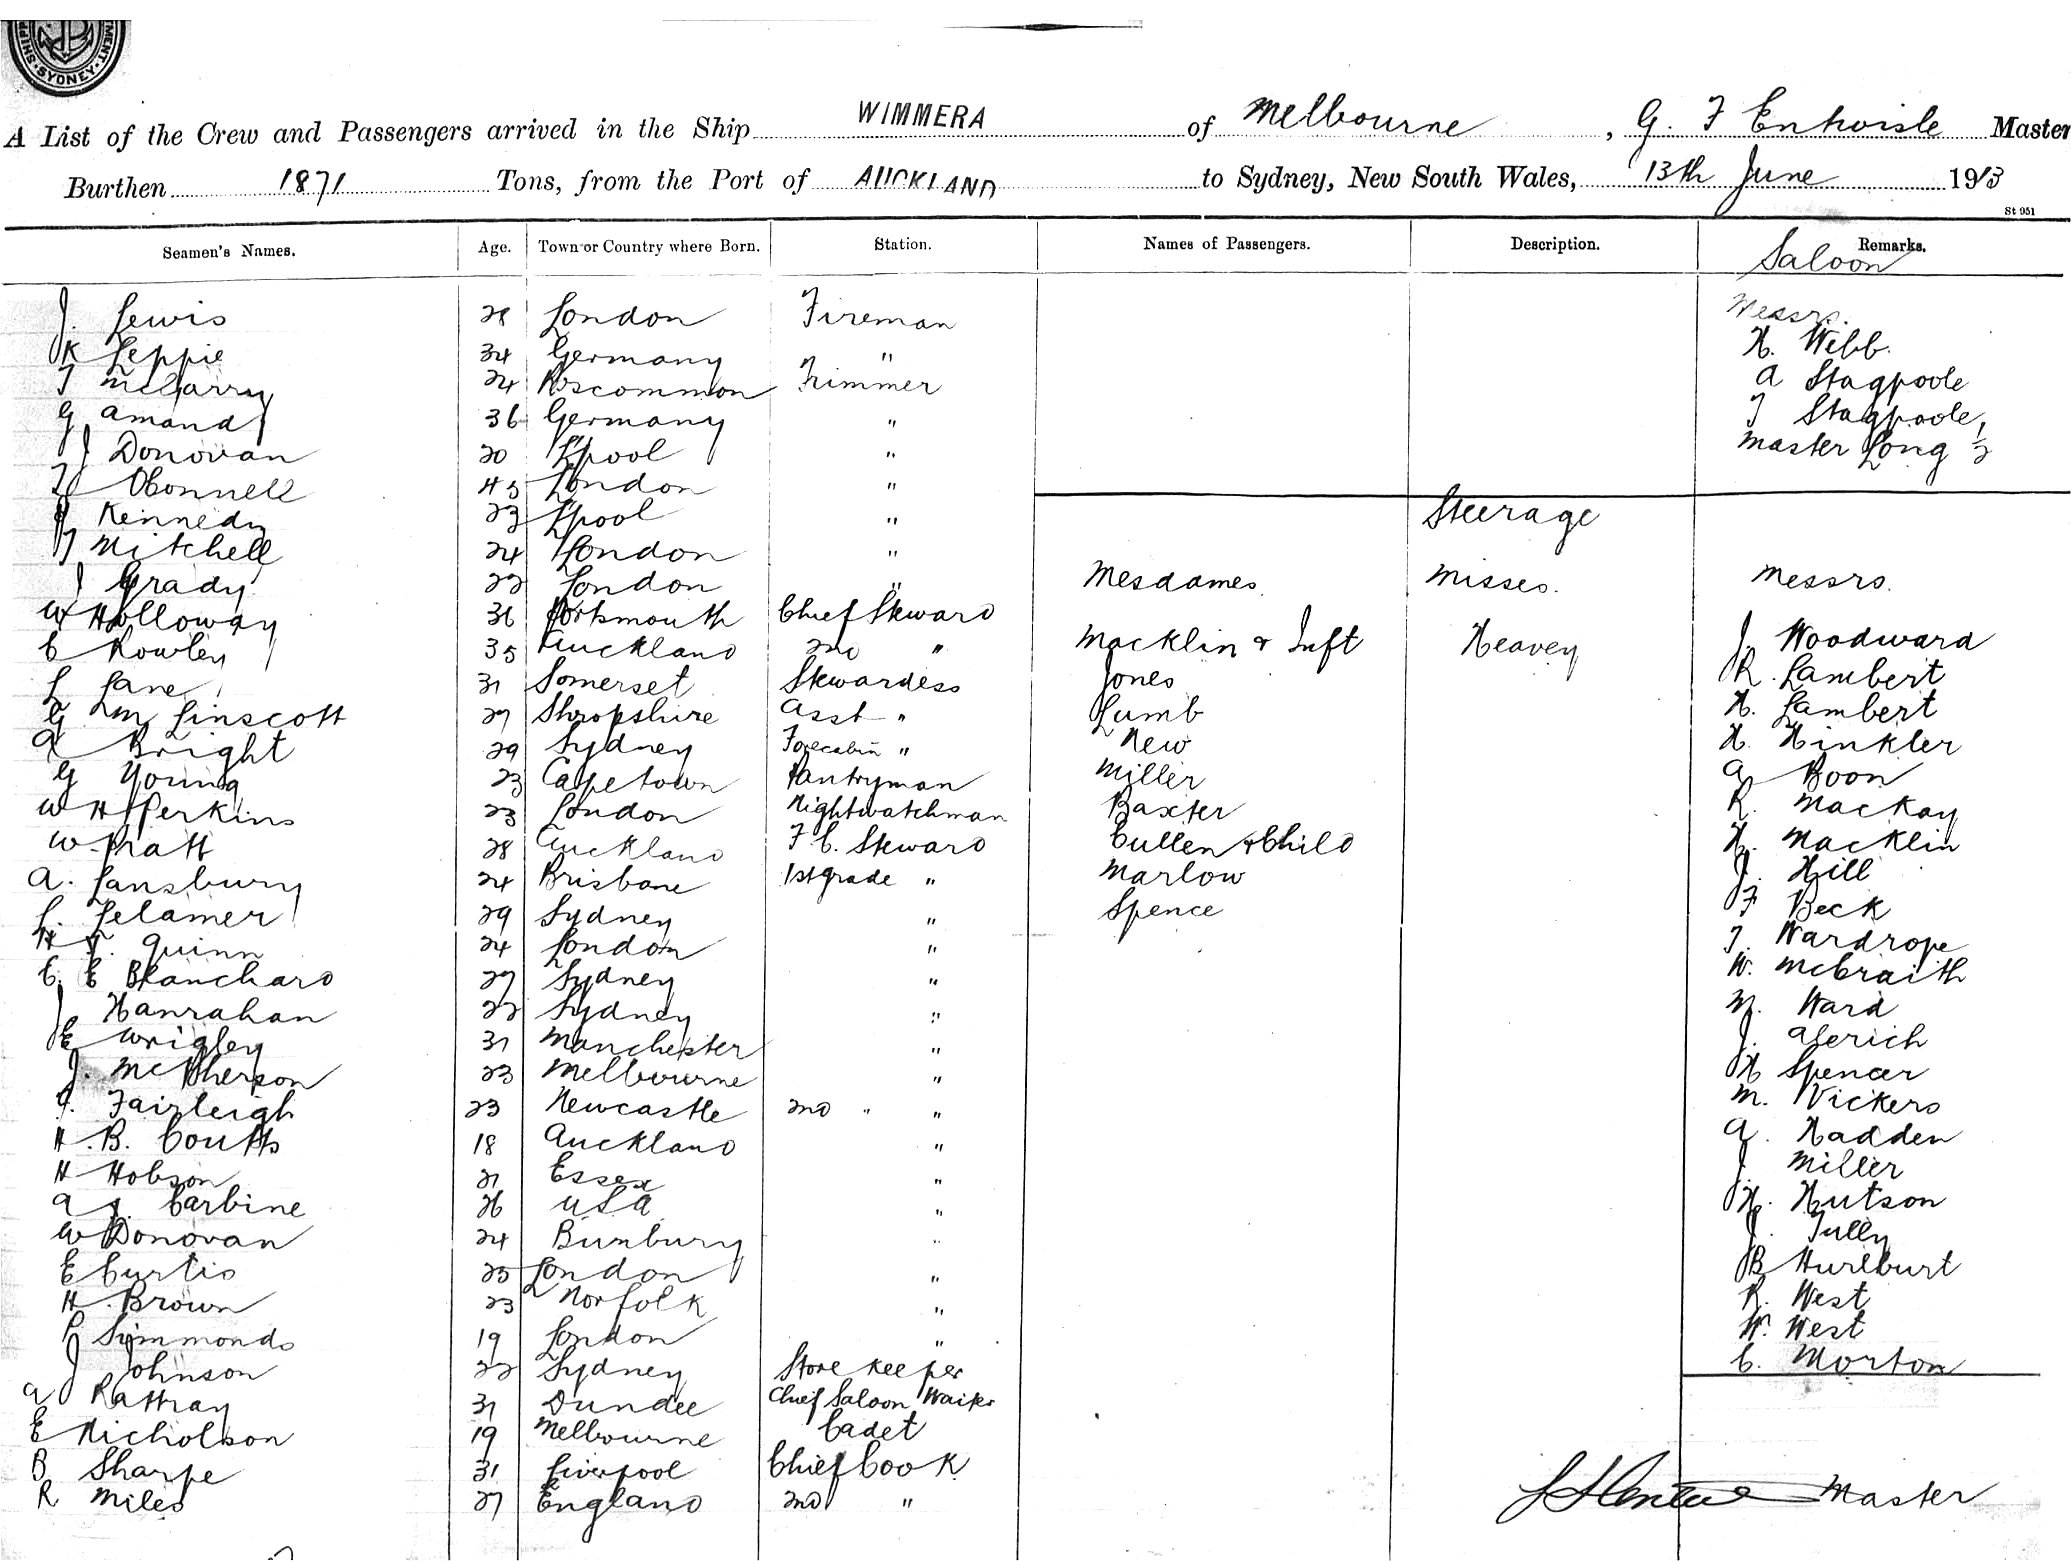 SYDNEY
A List of the Crew and Passengers arrived in the Ship WIMMERA of Melbourne, G. F Entwisle Master
Burthen 1871 Tons, from the Port of AUCKLAND to Sydney, New South Wales, 13th June 1913
St 951
Seamen's Names. Age. Town or Country where Born. Station. Names of Passengers. Description. Remarks.
Saloon
J. Lewis 28 London Fireman Messrs.
K Leppie 34 Germany " H. Webb.
T McGarry 24 Roscommon Trimmer A Stagpoole
G Amand 36 Germany " T Stagpoole,
J Donovan 20 L'pool " Master Long ½
T OConnell 45 London "
Kennedy 23 L'pool " Steerage
T Mitchell 24 London "
J Grady 22 London " Mesdames Misses. Messrs.
W Holloway 36 Portsmouth Chief Steward
C Rowley 35 Auckland 2nd " Macklin & Inft Heavey J. Woodward
L Lane 31 Somerset Stewardess Jones R. Lambert
G M Linscott 27 Shropshire Asst " Lumb H. Lambert
A Bright 29 Sydney Forecabin " New H. Hinkler
G Young 23 Capetown Pantryman Miller A Boon
W H Perkins 23 London Nightwatchman Baxter R. MacKay
W. Pratt 28 Auckland F C. Steward Cullen & Child H. Macklin
A. Lansbury 24 Brisbane 1st grade " Marlow J. Hill
L. Lelamer 29 Sydney " Spence F Beck
H J. Quinn 24 London " T. Wardrope
C. E Blanchard 27 Sydney " W. McCraith
J Hanrahan 22 Sydney " M. Ward
E Wrigley 31 Manchester " J. Alerich
J. McPherson 23 Melbourne " H Spencer
J. Fairleigh 23 Newcastle 2nd " " M. Vickers
H. B. Coutts 18 Auckland " A. Hadden
H Hobson 21 Essex " J. Miller
A J. Carbine 26 USA " H. Hutson
W Donovan 24 Bunbury " J. Tully
E Curtis 25 London " B Hurlburt
H. Brown 23 Norfolk " R. West
P Simmonds 19 London " W. West
J Johnson 22 Sydney Storekeeper C. Morton
A Rattray 31 Dundee Chief Saloon Waiter
E Nicholson 19 Melbourne Cadet
B Sharpe 31 Liverpool Chief Cook
R Miles 27 England 2nd " Master